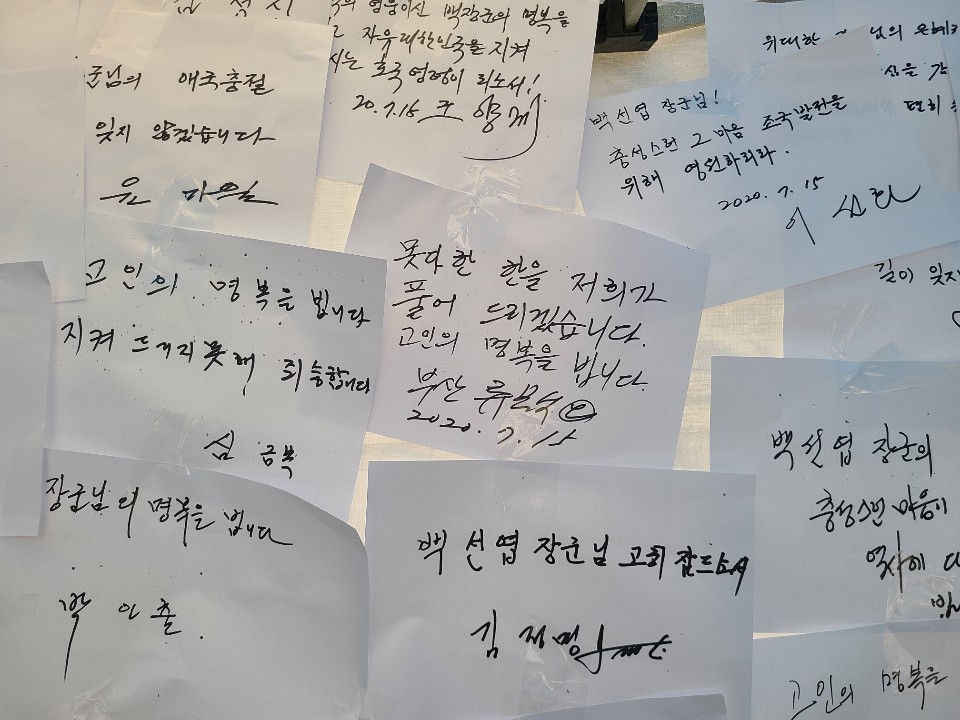 군님의 애국충절
잊지 않겠습니다
윤
의 영웅이신 백장군의 명복을
자유대한민국을 지켜
시는 호국영령이 되소서!
20.7.15
위대한 님의 은혜
백선엽 장군님!
충성스런 그 마음 조국발전을
위해 영원하리라.
2020.7.15
이
고인의 명복을 빕니다
지켜 드리지 못해 죄송합니다
심금복
못다한 한을 저희가
풀어 드리겠습니다.
고인의 명복을 빕니다.
부산 류
2020.7.15
길이 잊지
장군님의 명복을 빕니다
박인출.
백선엽장군님 고히 잠드소서
김재명
백선엽 장군의
충성스런 마음이
역사에
고인의 명복을